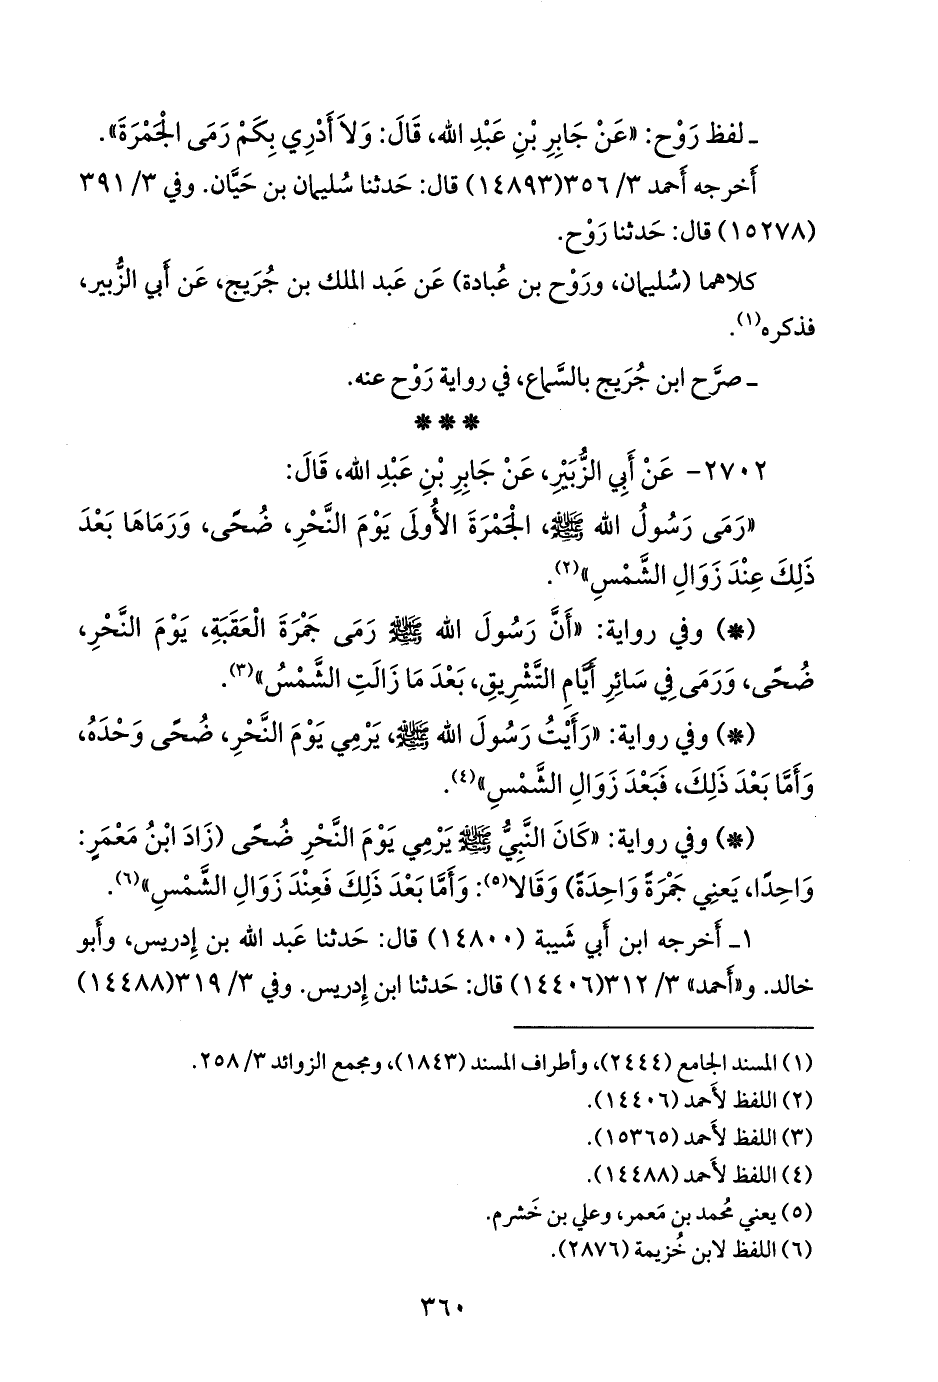 ـ لفظ رَوْح: «عَنْ جَابِرِ بْنِ عَبْدِ الله، قَالَ: وَلاَ أَدْرِي بِكَمْ رَمَى الْجَمْرَةَ».
أَخرجه أَحمد ٣/ ٣٥٦(١٤٨٩٣) قال: حَدثنا سُليمان بن حَيَّان. وفي ٣/ ٣٩١
(١٥٢٧٨) قال: حَدثنا رَوْح.
كلاهما (سُليمان، ورَوْح بن عُبادة) عَن عَبد الملك بن جُرَيج، عَن أَبي الزُّبير،
فذكره(١).
ـ صرَّح ابن جُرَيج بالسَّماع، في رواية رَوْح عنه.
***
٢٧٠٢- عَنْ أَبِي الزُّبَيْرِ، عَنْ جَابِرِ بْنِ عَبْدِ الله، قَالَ:
«رَمَى رَسُولُ الله ﷺ، الْجَمْرَةَ الأُولَى يَوْمَ النَّحْرِ، ضُحًى، وَرَمَاهَا بَعْدَ
ذَلِكَ عِنْدَ زَوَالِ الشَّمْسِ»(٢).
(*) وفي رواية: «أَنَّ رَسُولَ الله ﷺ رَمَى جَمْرَةَ الْعَقَبَةِ، يَوْمَ النَّحْرِ،
ضُحًى، وَرَمَى فِي سَائِرِ أَيَّامِ التَّشْرِيقِ، بَعْدَ مَا زَالَتِ الشَّمْسُ»(٣).
(*) وفي رواية: «رَأَيْتُ رَسُولَ الله ﷺ، يَرْمِي يَوْمَ النَّحْرِ، ضُحًى وَحْدَهُ،
وَأَمَّا بَعْدَ ذَلِكَ، فَبَعْدَ زَوَالِ الشَّمْسِ»(٤).
(*) وفي رواية: «كَانَ النَّبِيُّ ﷺ يَرْمِي يَوْمَ النَّحْرِ ضُحًى (زَادَ ابْنُ مَعْمَرٍ:
وَاحِدًا، يَعنِي جَمْرَةً وَاحِدَةً) وَقَالا(٥): وَأَمَّا بَعْدَ ذَلِكَ فَعِنْدَ زَوَالِ الشَّمْسِ»(٦).
١ـ أَخرجه ابن أَبي شَيبة (١٤٨٠٠) قال: حَدثنا عَبد الله بن إِدريس، وأَبو
خالد. و«أَحمد» ٣/ ٣١٢(١٤٤٠٦) قال: حَدثنا ابن إِدريس. وفي ٣/ ٣١٩(١٤٤٨٨)
(١) المسند الجامع (٢٤٤٤)، وأطراف المسند (١٨٤٣)، ومجمع الزوائد ٣/ ٢٥٨.
(٢) اللفظ لأَحمد (١٤٤٠٦).
(٣) اللفظ لأَحمد (١٥٣٦٥).
(٤) اللفظ لأَحمد (١٤٤٨٨).
(٥) يعني مُحمد بن مَعمر، وعلي بن خَشرم.
(٦) اللفظ لابن خُزيمة (٢٨٧٦).
٣٦٠